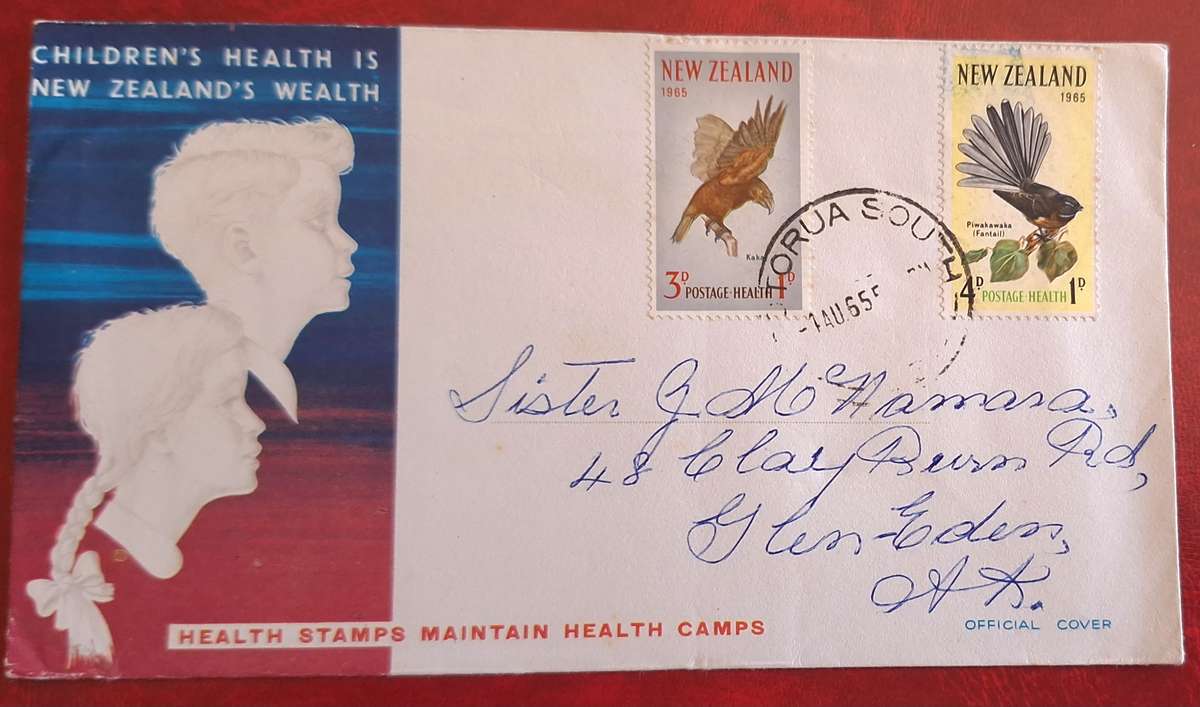 CHILDREN'S HEALTH IS
NEW ZEALAND'S WEALTH
NEW ZEALAND
1965
Kaka
3D POSTAGE-HEALTH 1D
NEW ZEALAND
1965
Piwakawaka
(Fantail)
4D POSTAGE-HEALTH 1D
HORUA SOUTH
-1AU.65
Sister J McNamara,
48 Clay Burn Rd,
Glen-Eden,
AK.
HEALTH STAMPS MAINTAIN HEALTH CAMPS
OFFICIAL COVER